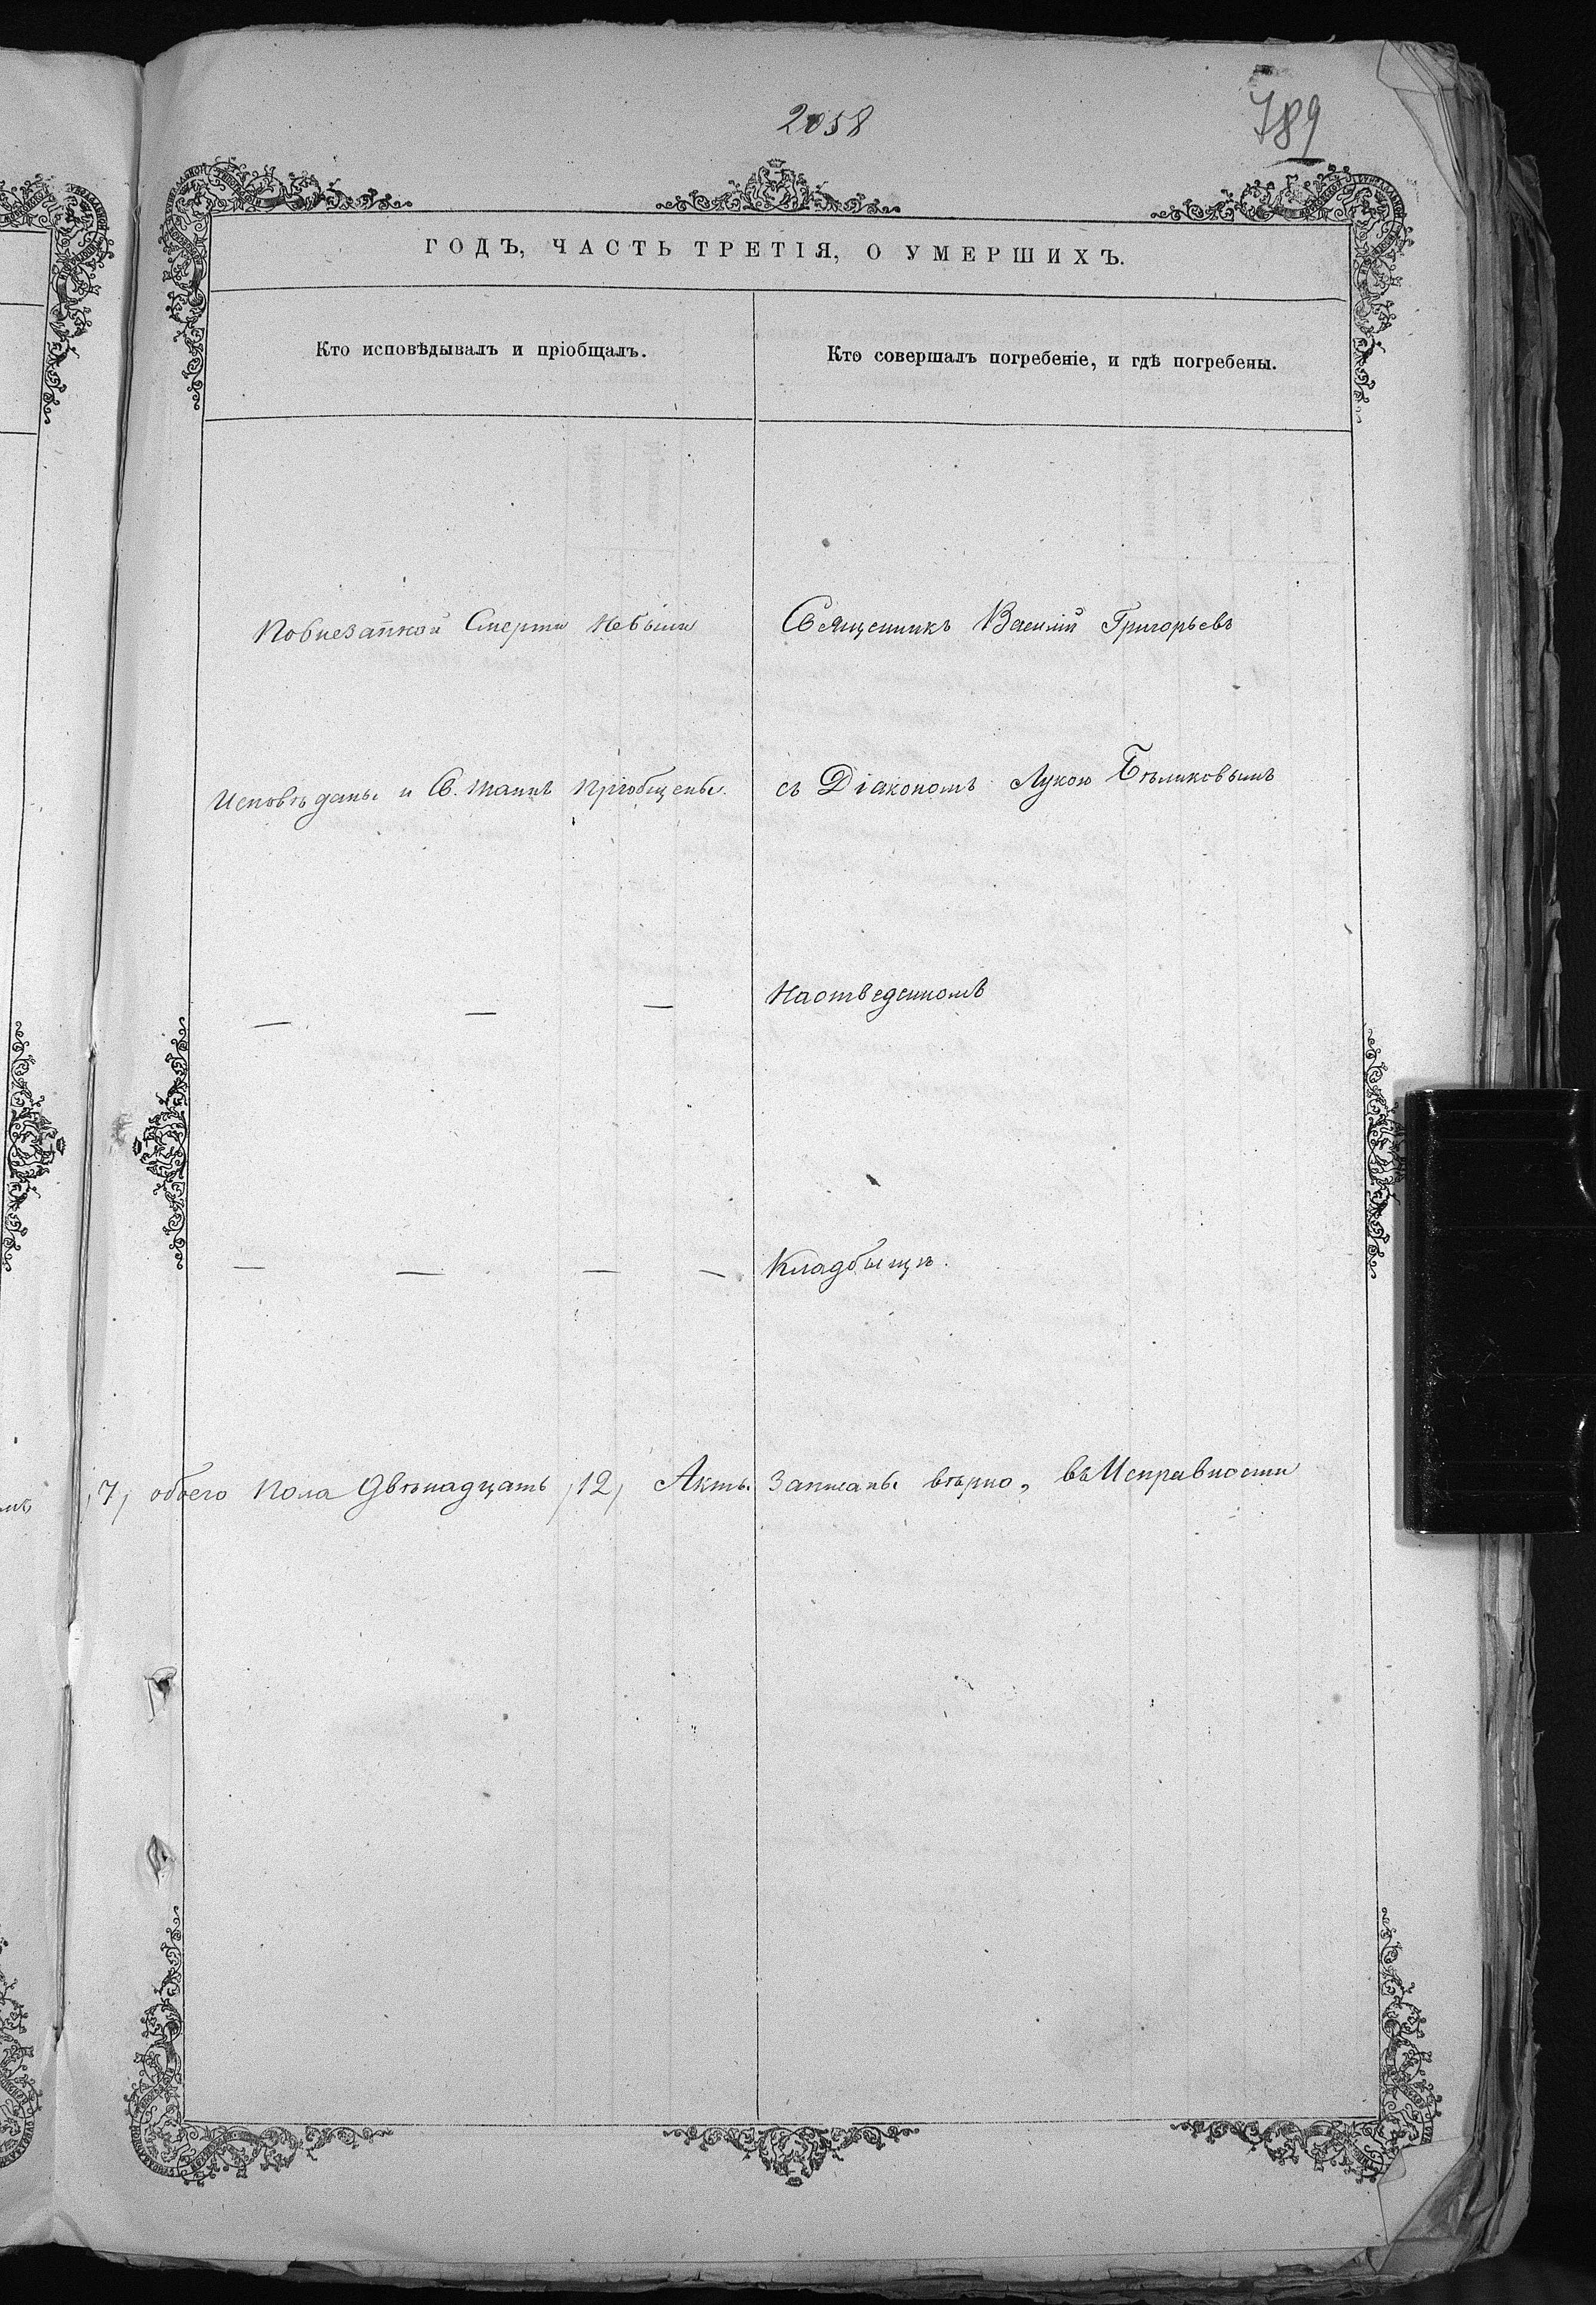 2058
789
ГОДЪ, ЧАСТЬ ТРЕТІЯ, О УМЕРШИХЪ.
Кто исповѣдывалъ и пріобщалъ.
Кто совершалъ погребеніе, и гдѣ погребены.
Повнезапной Смерти небыли
Священникъ Василій Григорьевъ
Исповѣданы и Св. таинъ пріобщены.
съ Діакономъ Лукою Бѣликовымъ
— — —
Наотведенномъ
— — — —
Кладбыщѣ.
7, обоего пола Двѣнадцать /12/ Акты Записаны вѣрно, въ Исправности